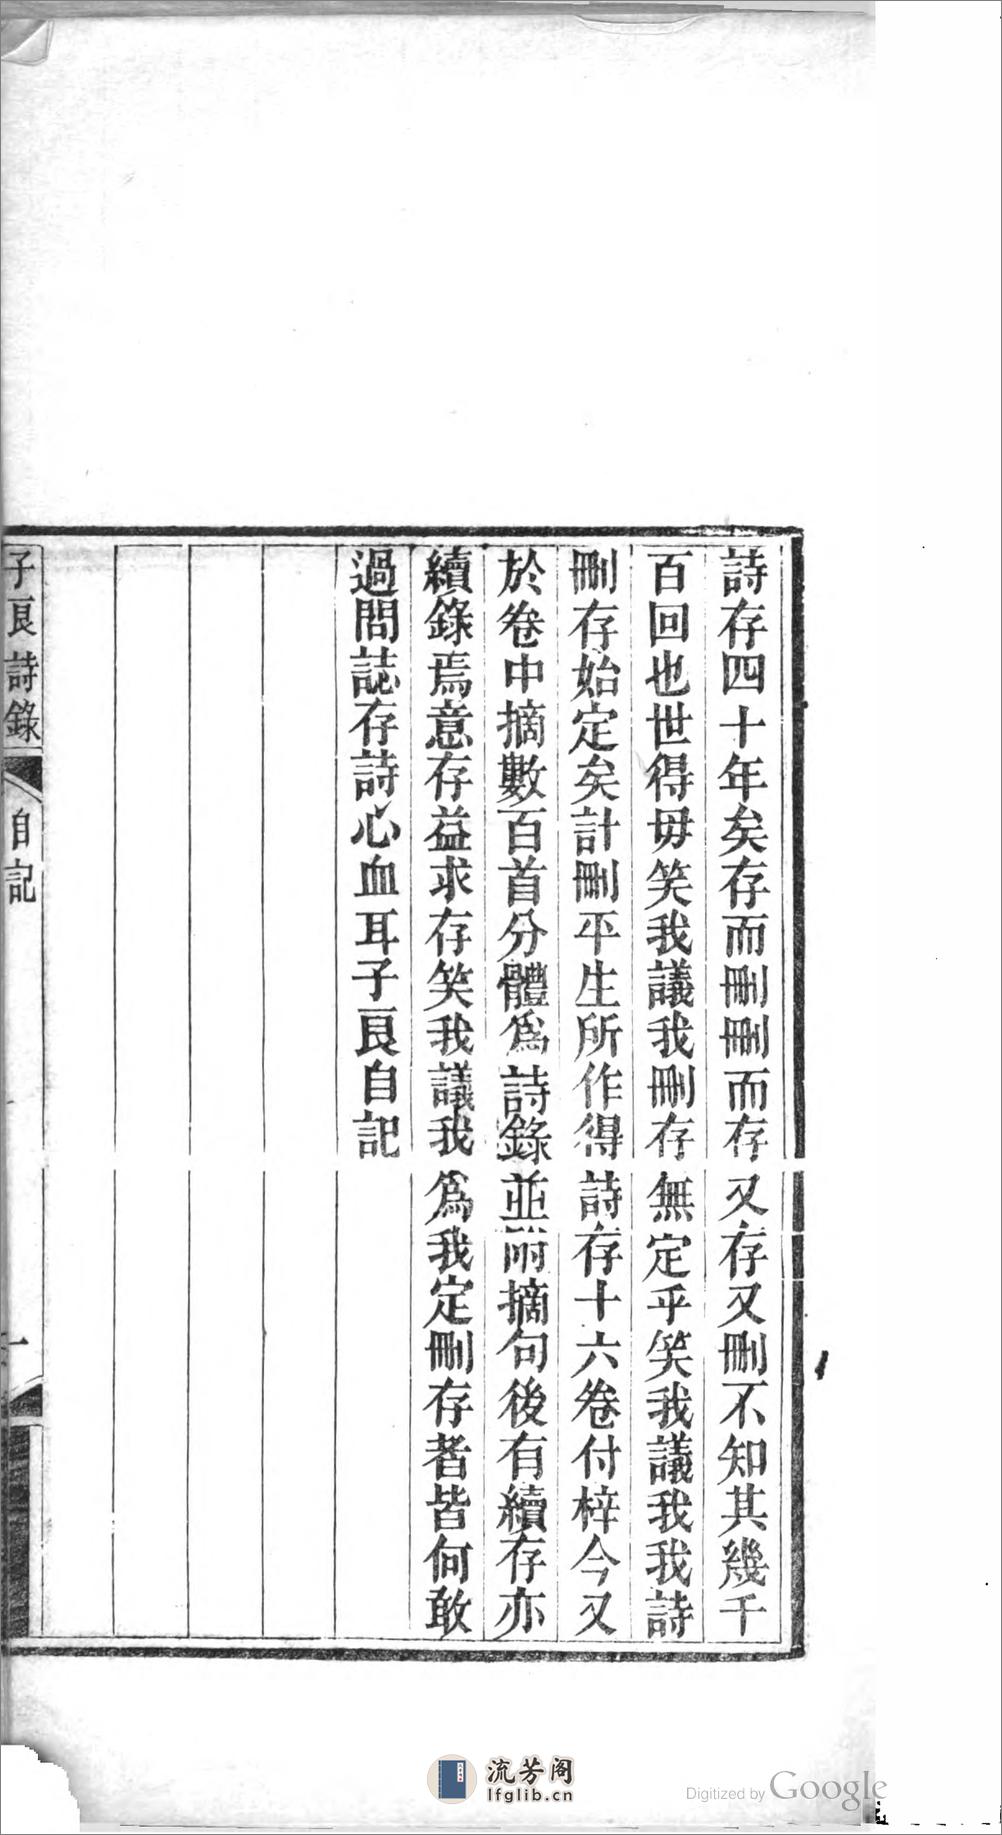 詩存四十年矣存而刪刪而存又存又刪不知其幾千
百回也世得毋笑我議我刪存無定乎笑我議我我詩
刪存始定矣計刪平生所作得詩存十六卷付梓今又
於卷中摘數百首分體爲詩錄並附摘句後有續存亦
續錄焉意存益求存笑我議我爲我定刪存者皆何敢
過問誌存詩心血耳子良自記
子良詩錄 自記 一
流芳阁
lfglib.cn
Digitized by Google